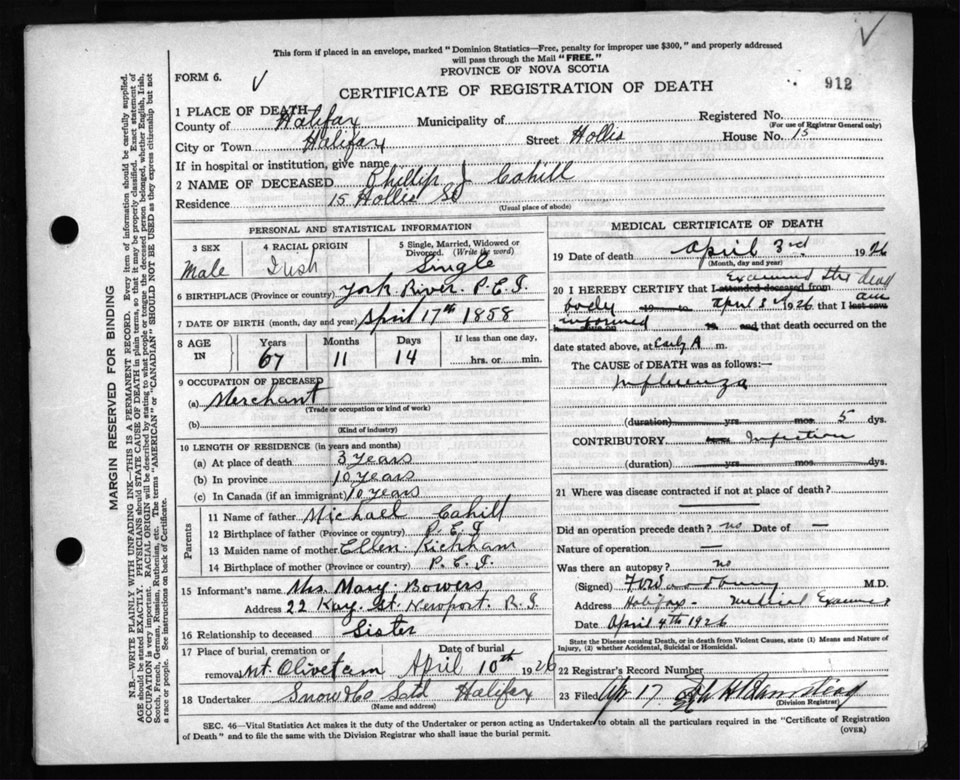 This form if placed in an envelope, marked "Dominion Statistics—Free, penalty for improper use $300," and properly addressed
will pass through the Mail "FREE."
FORM 6.
PROVINCE OF NOVA SCOTIA
CERTIFICATE OF REGISTRATION OF DEATH
912
1 PLACE OF DEATH—
County of Halifax Municipality of Registered No.
(For use of Registrar General only)
City or Town Halifax Street Hollis House No. 15
If in hospital or institution, give name
2 NAME OF DECEASED Phillip J Cahill
Residence 15 Hollis St
(Usual place of abode)
PERSONAL AND STATISTICAL INFORMATION
3 SEX Male
4 RACIAL ORIGIN Irish
5 Single, Married, Widowed or
Divorced. (Write the word)
Single
6 BIRTHPLACE (Province or country) York River. P.E.I.
7 DATE OF BIRTH (month, day and year) April 17th 1858
8 AGE IN Years 67 Months 11 Days 14 If less than one day, hrs. or min.
9 OCCUPATION OF DECEASED
(a) Merchant
(Trade or occupation or kind of work)
(b)
(Kind of industry)
10 LENGTH OF RESIDENCE (in years and months)
(a) At place of death 3 years
(b) In province 10 years
(c) In Canada (if an immigrant) 10 years
Parents
11 Name of father Michael Cahill
12 Birthplace of father (Province or country) P.E.I
13 Maiden name of mother Ellen Kickham
14 Birthplace of mother (Province or country) P.E.I.
15 Informant's name Mrs. Mary. Bowers
Address 22 Kay. St. Newport. R.I.
16 Relationship to deceased Sister
17 Place of burial, cremation or Date of burial
removal Mt. Olivet am April 10th 1926
18 Undertaker Snow & Co Ltd Halifax
(Name and address)
MEDICAL CERTIFICATE OF DEATH
19 Date of death April 3rd. 1926
(Month, day and year)
20 I HEREBY CERTIFY that I attended deceased from Examined the dead
body 19 to April 3rd 1926 that I last saw am
informed 19 and that death occurred on the
date stated above, at Early A m.
The CAUSE of DEATH was as follows:—
Influenza
(duration) yrs mos 5 dys.
CONTRIBUTORY Infection
(duration) yrs mos dys.
21 Where was disease contracted if not at place of death?
Did an operation precede death? no Date of —
Nature of operation —
Was there an autopsy? no
(Signed) M.D.
Address Halifax. Medical Examiner
Date April 4th 1926
State the Disease causing Death, or in death from Violent Causes, state (1) Means and Nature of
Injury, (2) whether Accidental, Suicidal or Homicidal.
22 Registrar's Record Number
23 Filed Apr 17
(Division Registrar)
SEC. 46—Vital Statistics Act makes it the duty of the Undertaker or person acting as Undertaker to obtain all the particulars required in the "Certificate of Registration
of Death" and to file the same with the Division Registrar who shall issue the burial permit.
(OVER)
MARGIN RESERVED FOR BINDING
N.B.—WRITE PLAINLY WITH UNFADING INK—THIS IS A PERMANENT RECORD. Every item of information should be carefully supplied.
AGE should be stated EXACTLY. PHYSICIANS should STATE CAUSE OF DEATH in plain terms, so that it may be properly classified. Exact statement of
OCCUPATION is very important. RACIAL ORIGIN will be described by stating to what people or tongue the deceased person belonged, whether English, Irish,
Scotch, French, German, Russian, Ruthenian, etc. The terms "AMERICAN" or "CANADIAN" SHOULD NOT BE USED as they express citizenship but not
a race or people. See instructions on back of Certificate.